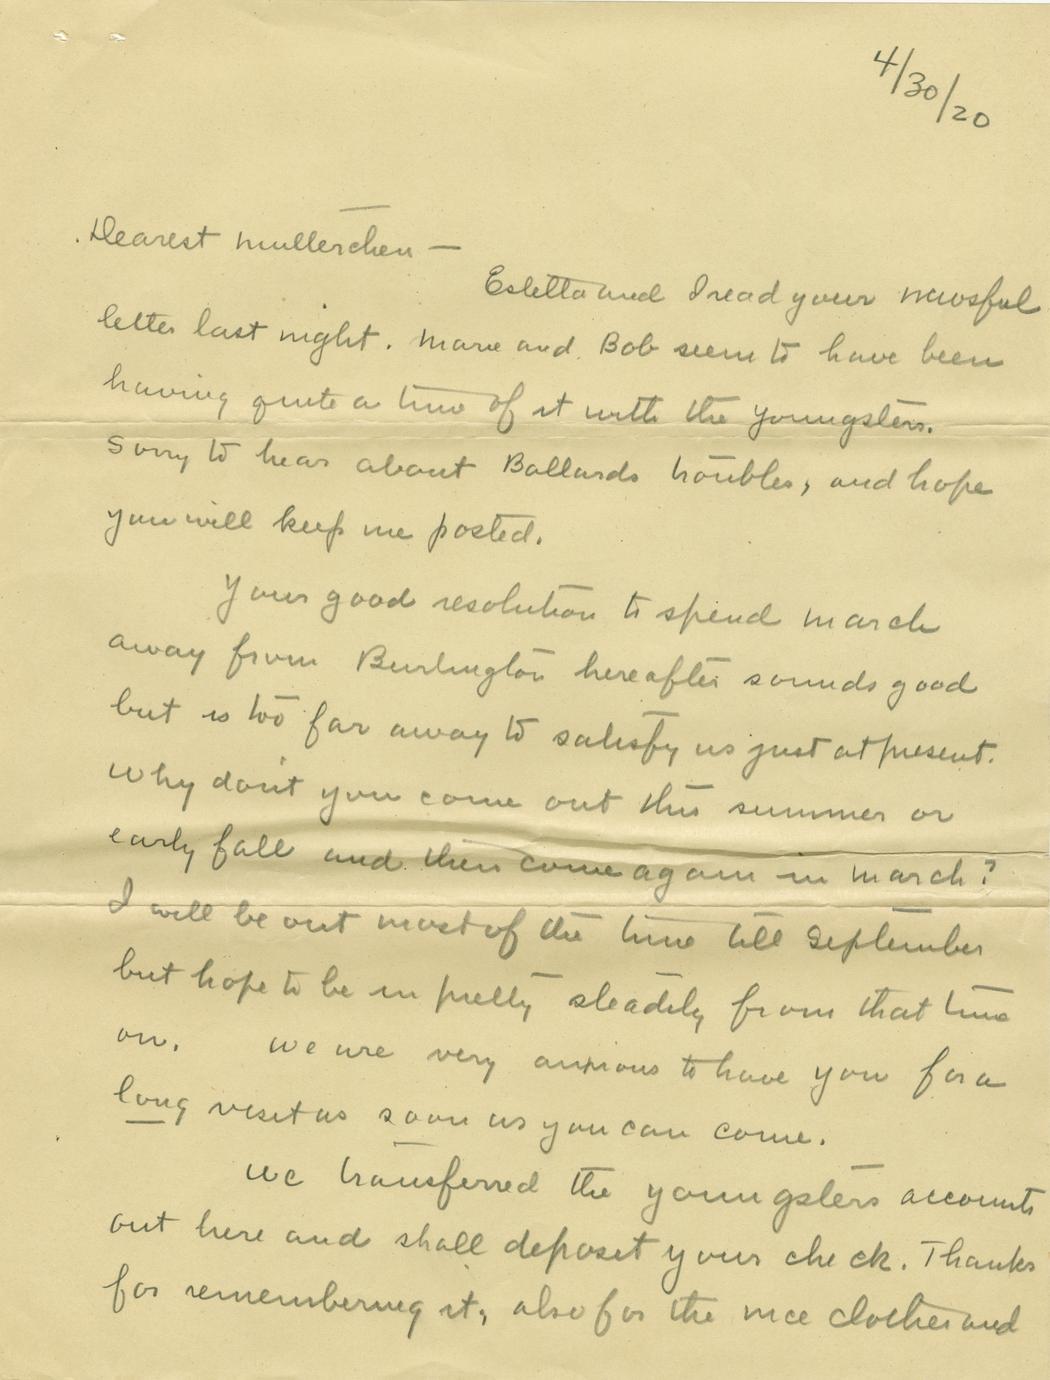 4/30/20
Dearest Mutterchen —
Esletta and I read your newsful
letter last night. Marie and Bob seem to have been
having quite a time of it with the youngsters.
Sorry to hear about Ballards troubles, and hope
you will keep me posted.
Your good resolution to spend March
away from Burlington hereafter sounds good
but is too far away to satisfy us just at present.
Why don't you come out this summer or
early fall and then come again in March?
I will be out most of the time till September
but hope to be in pretty steadily from that time
on. We are very anxious to have you for a
long visit as soon as you can come.
We transferred the youngsters accounts
out here and shall deposit your check. Thanks
for remembering it, also for the nice clothes and